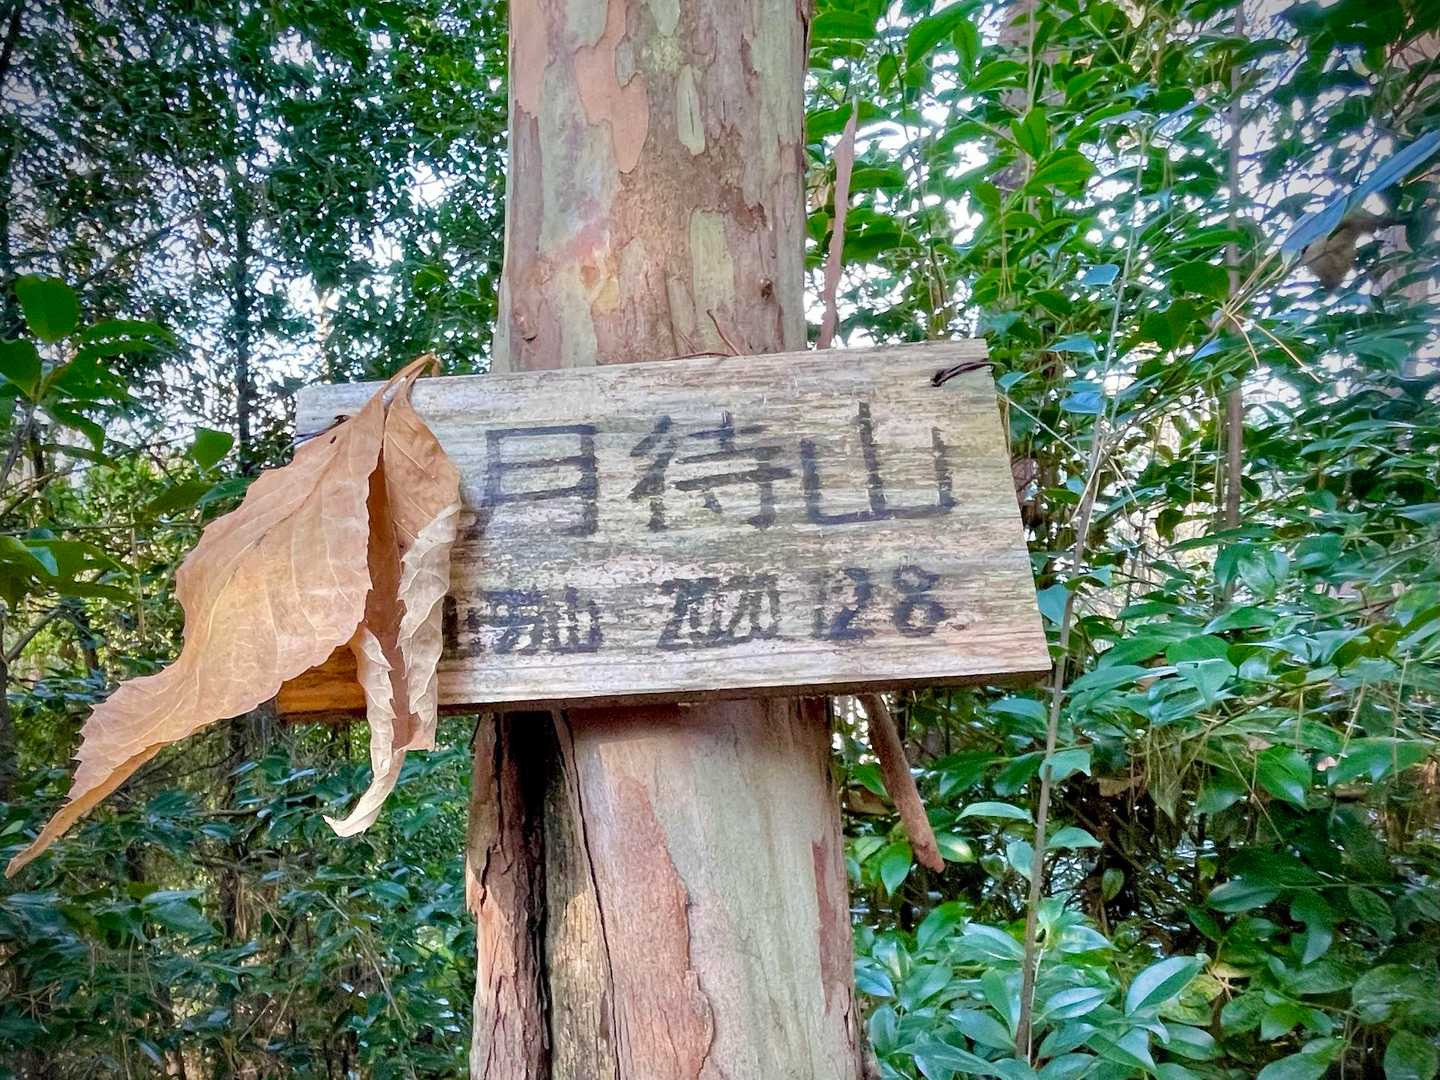 月待山
労山 2020 12 8